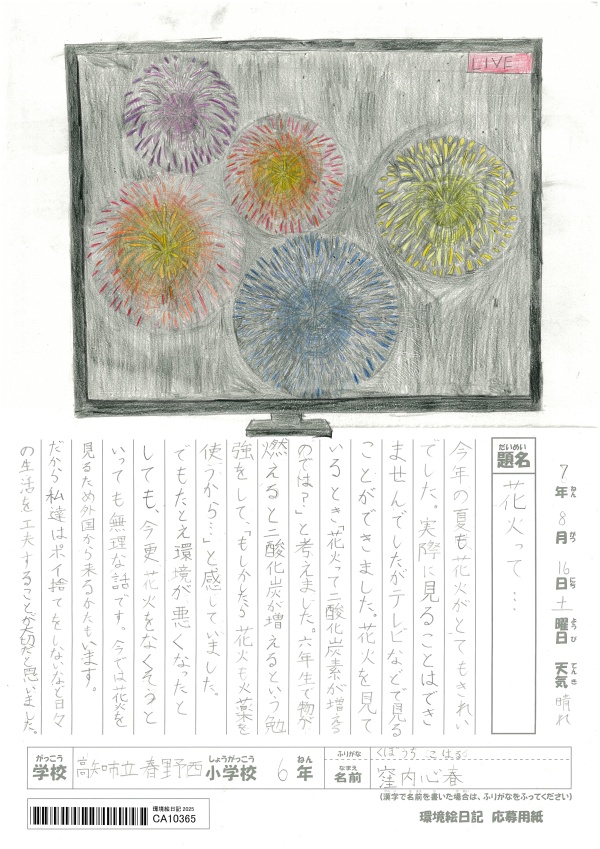 LIVE
7年ねん 8月がつ 16日にち 土曜日ようび 天気てんき 晴れ
だいめい
題名
花火って…
今年の夏も花火がとてもきれい
でした。実際に見ることはでき
ませんでしたがテレビなどで見る
ことができました。花火を見て
いるとき「花火って二酸化炭素が増える
のでは?」と考えました。六年生で物が
燃えると二酸化炭が増えるという勉
強をして、「もしかしたら花火も火薬を
使うから…」と感していました。
でもたとえ環境が悪くなったと
しても、今更花火をなくそうと
いっても無理な話です。今では花火を
見るため外国から来るかたもいます。
だから私達はポイ捨てをしないなど日々
の生活を工夫することが大切だと思いました。
がっこう しょうがっこう ねん
学校 高知市立春野西小学校 6年
ふりがな くぼうち こはる
なまえ
名前 窪内心春
(漢字で名前を書いた場合は、ふりがなをふってください)
環境絵日記 2025
CA10365
環境絵日記 応募用紙